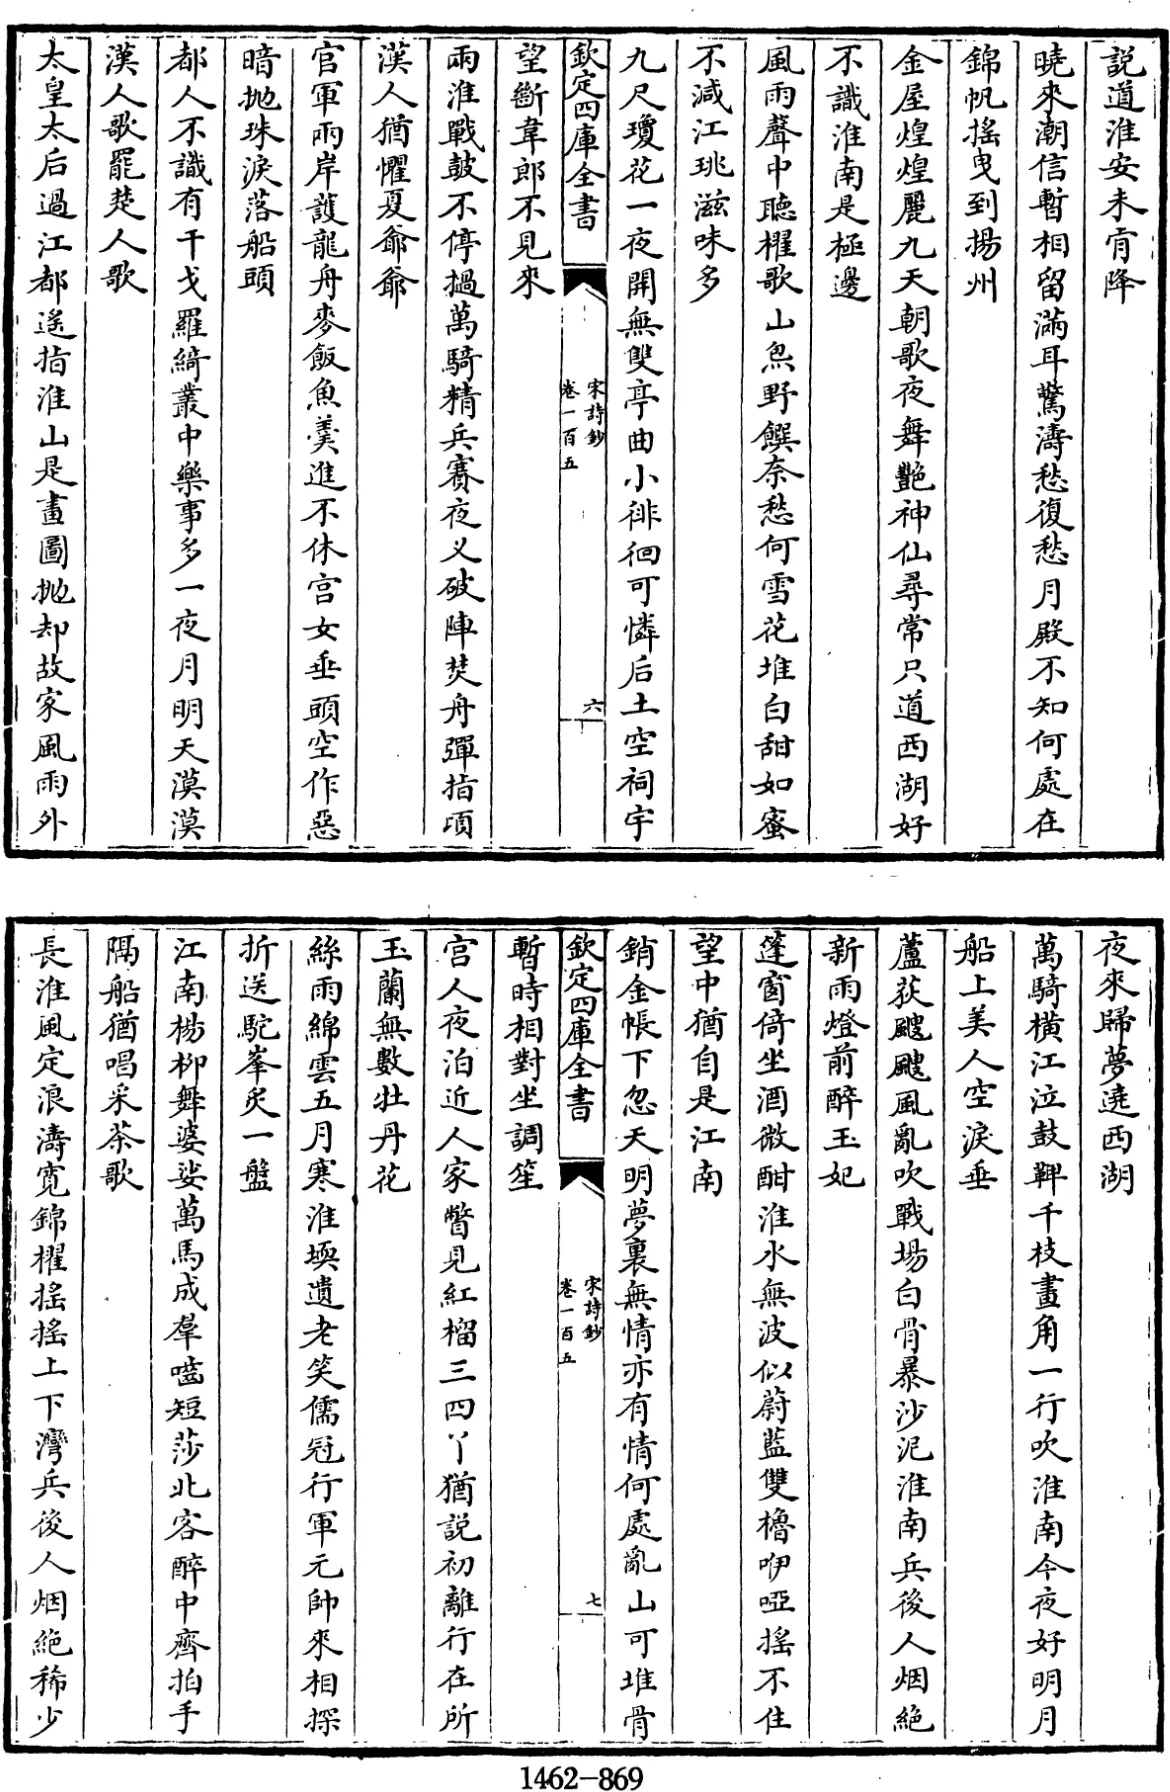 説道淮安未肯降
曉來潮信暫相留滿耳驚濤愁復愁月殿不知何處在
錦帆搖曳到揚州
金屋煌煌麗九天朝歌夜舞艷神仙尋常只道西湖好
不識淮南是極邊
風雨聲中聽櫂歌山炰野饌奈愁何雪花堆白甜如蜜
不減江珧滋味多
九尺瓊花一夜開無雙亭曲小徘徊可憐后土空祠宇
欽定四庫全書
宋詩鈔
卷一百五
六
望斷韋郎不見來
兩淮戰鼓不停撾萬騎精兵賽夜义破陣焚舟彈指頃
漢人猶懼夏爺爺
官軍兩岸護龍舟麥飯魚羮進不休宫女垂頭空作惡
暗抛珠淚落船頭
都人不識有干戈羅綺叢中樂事多一夜月明天漠漠
漢人歌罷楚人歌
太皇太后過江都遥指淮山是畫圖抛却故家風雨外
夜來歸夢遶西湖
萬騎橫江泣鼓鞞千枝畫角一行吹淮南今夜好明月
船上美人空淚垂
蘆荻颼颼風亂吹戰場白骨暴沙泥淮南兵後人烟絶
新雨燈前醉玉妃
篷窗倚坐酒微酣淮水無波似蔚藍雙櫓咿啞搖不住
望中猶自是江南
銷金帳下忽天明夢裏無情亦有情何處亂山可堆骨
欽定四庫全書
宋詩鈔
卷一百五
七
暫時相對坐調笙
宫人夜泊近人家瞥見紅榴三四丫猶説初離行在所
玉蘭無數牡丹花
絲雨綿雲五月寒淮堧遺老笑儒冠行軍元帥來相探
折送駝峯炙一盤
江南楊柳舞婆娑萬馬成羣嚙短莎北客醉中齊拍手
隔船猶唱采茶歌
長淮風定浪濤寛錦櫂搖搖上下灣兵後人烟絶稀少
1462-869